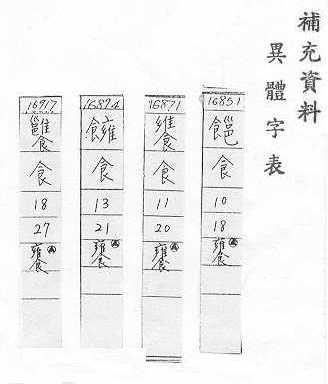 補充資料
異體字表
16851
食
10
18
饔
16871
食
11
20
饔
16874
食
13
21
饔
16917
食
18
27
饔